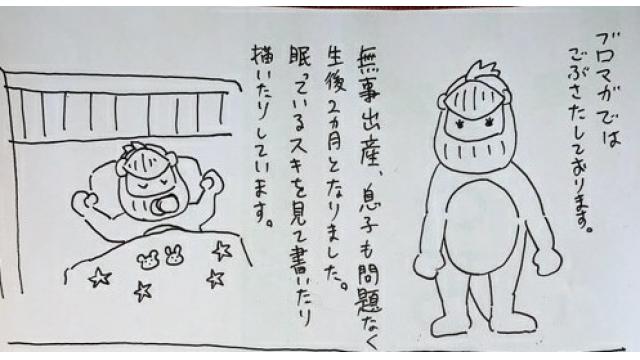 ブロマガでは
ごぶさたしております。
無事出産、息子も問題なく
生後2カ月となりました。
眠っているスキを見て書いたり
描いたりしています。